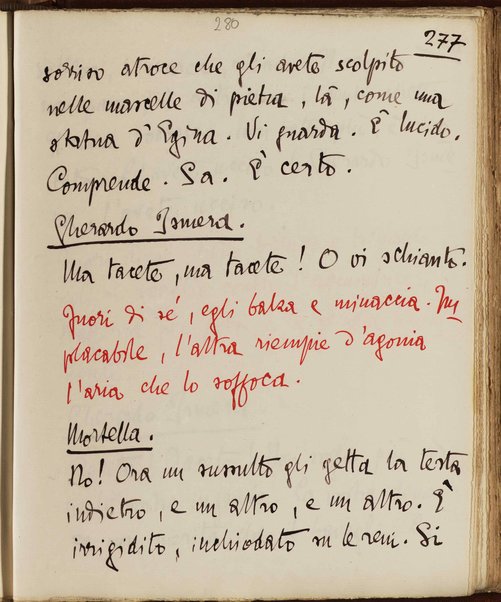 280
277
sorriso atroce che gli avete scolpito
nelle mascelle di pietra, là, come una
statua d'Egina. Vi guarda. È lucido.
Comprende. Sa. È certo.
Gherardo Ismera.
Ma tacete, ma tacete! O vi schianto.
Fuori di sé, egli balza e minaccia. Im
placabile, l'altra riempie d'agonia
l'aria che lo soffoca.
Mortella.
No! Ora un sussulto gli getta la testa
indietro, e un altro, e un altro. È
irrigidito, inchiodato su le reni. Si